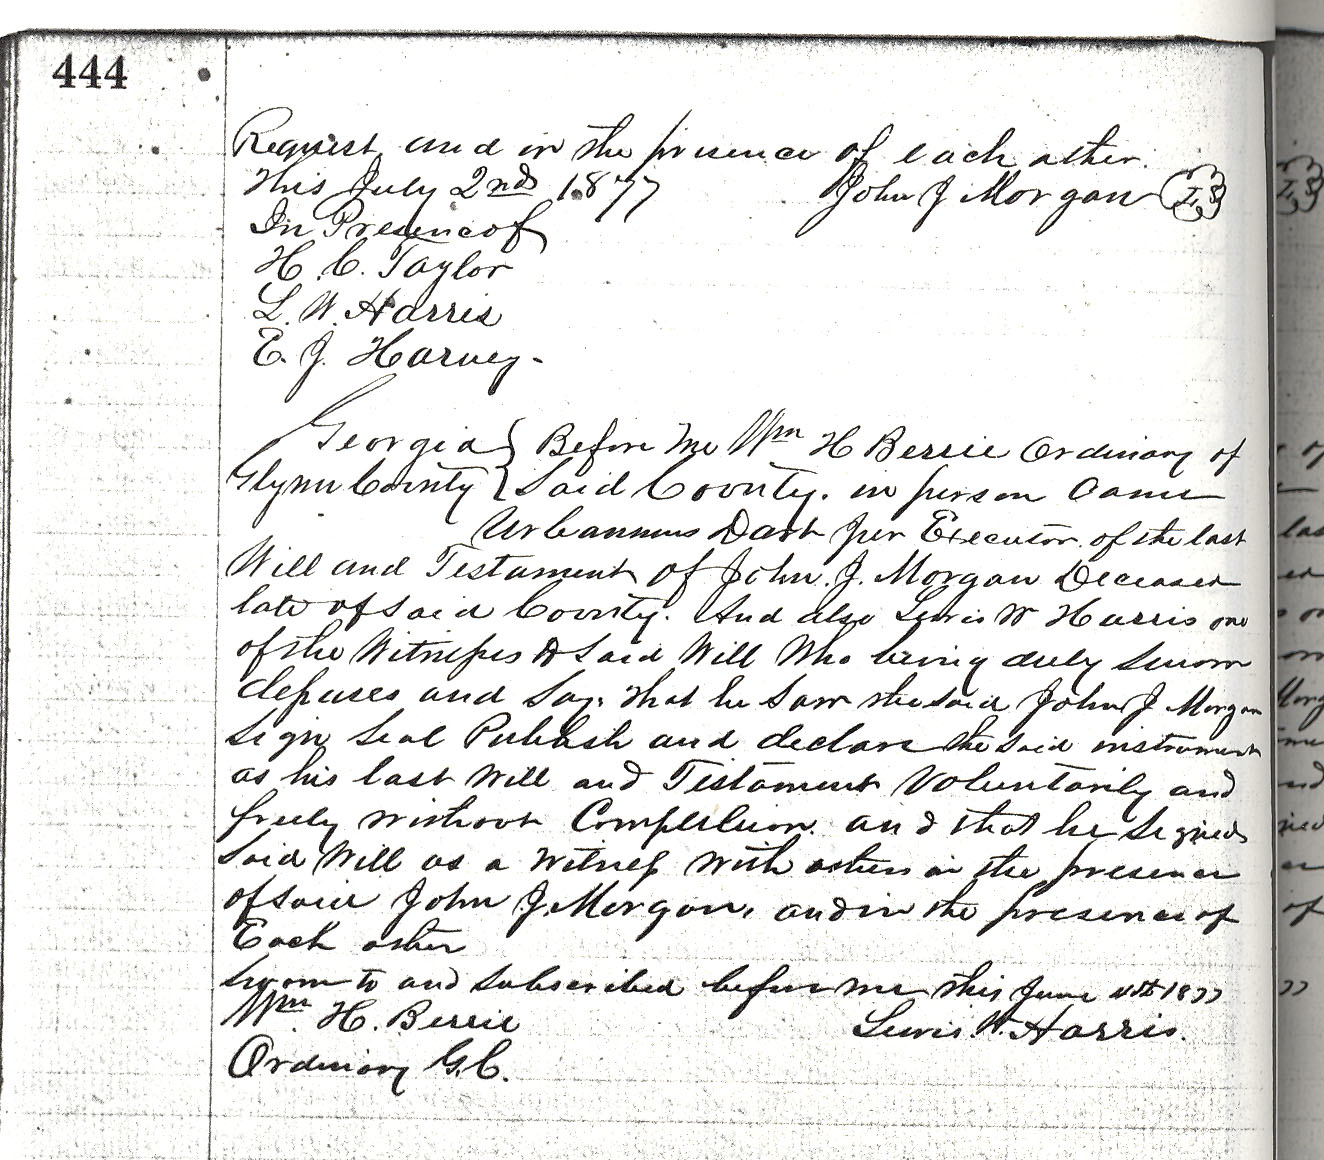 444
Request and in the presence of each other.
this July 2nd 1877 John J Morgan L.S.
In Presence of
H. C. Taylor
L. W. Harris
E. J. Harvey -
Georgia } Before me Wm H Berrie Ordinary of
Glynn County } Said County. in person Came
Urbannus Dart Executor of the last
Will and Testament of John. J. Morgan Deceased
late of Said County. And also Lewis W Harris one
of the Witnesses to Said Will Who being duly Sworn
deposes and Say. that he Saw the said John J Morgan
Sign Seal Publish and declare the Said instrument
as his last Will and Testament Voluntarily and
freely without Compulsion. and that he Signed
Said Will as a Witness with others in the presence
of said John J. Morgan, and in the presence of
Each other
Sworn to and Subscribed before me this June 1877
Wm. H. Berrie Lewis. W. Harris.
Ordinary G.C.